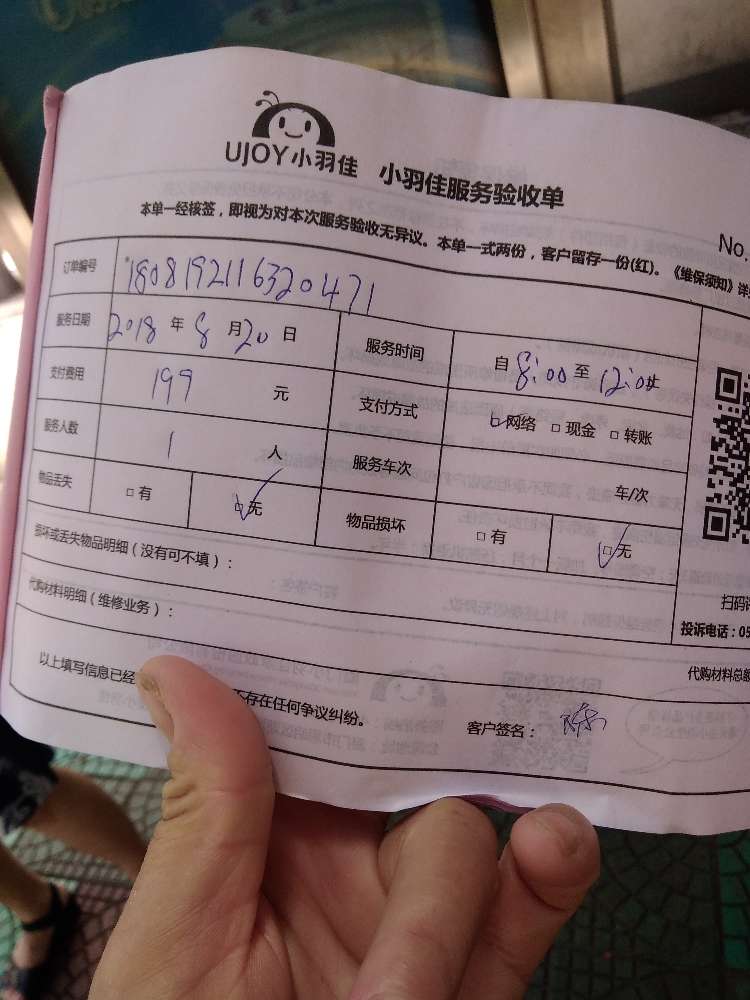 UJOY小羽佳 小羽佳服务验收单
本单一经核签，即视为对本次服务验收无异议。本单一式两份，客户留存一份(红)。《维保须知》详
No.
订单编号 1808192116320471
服务日期 2018 年 8 月 20 日 服务时间 自 8:00 至 12:00
支付费用 199 元 支付方式 网络 现金 转账
服务人数 1 人 服务车次 车/次
物品丢失 有 无 物品损坏 有 无
损坏或丢失物品明细（没有可不填）：
代购材料明细（维修业务）：
扫码
投诉电话：05
代购材料总额
以上填写信息已经 不存在任何争议纠纷。 客户签名：